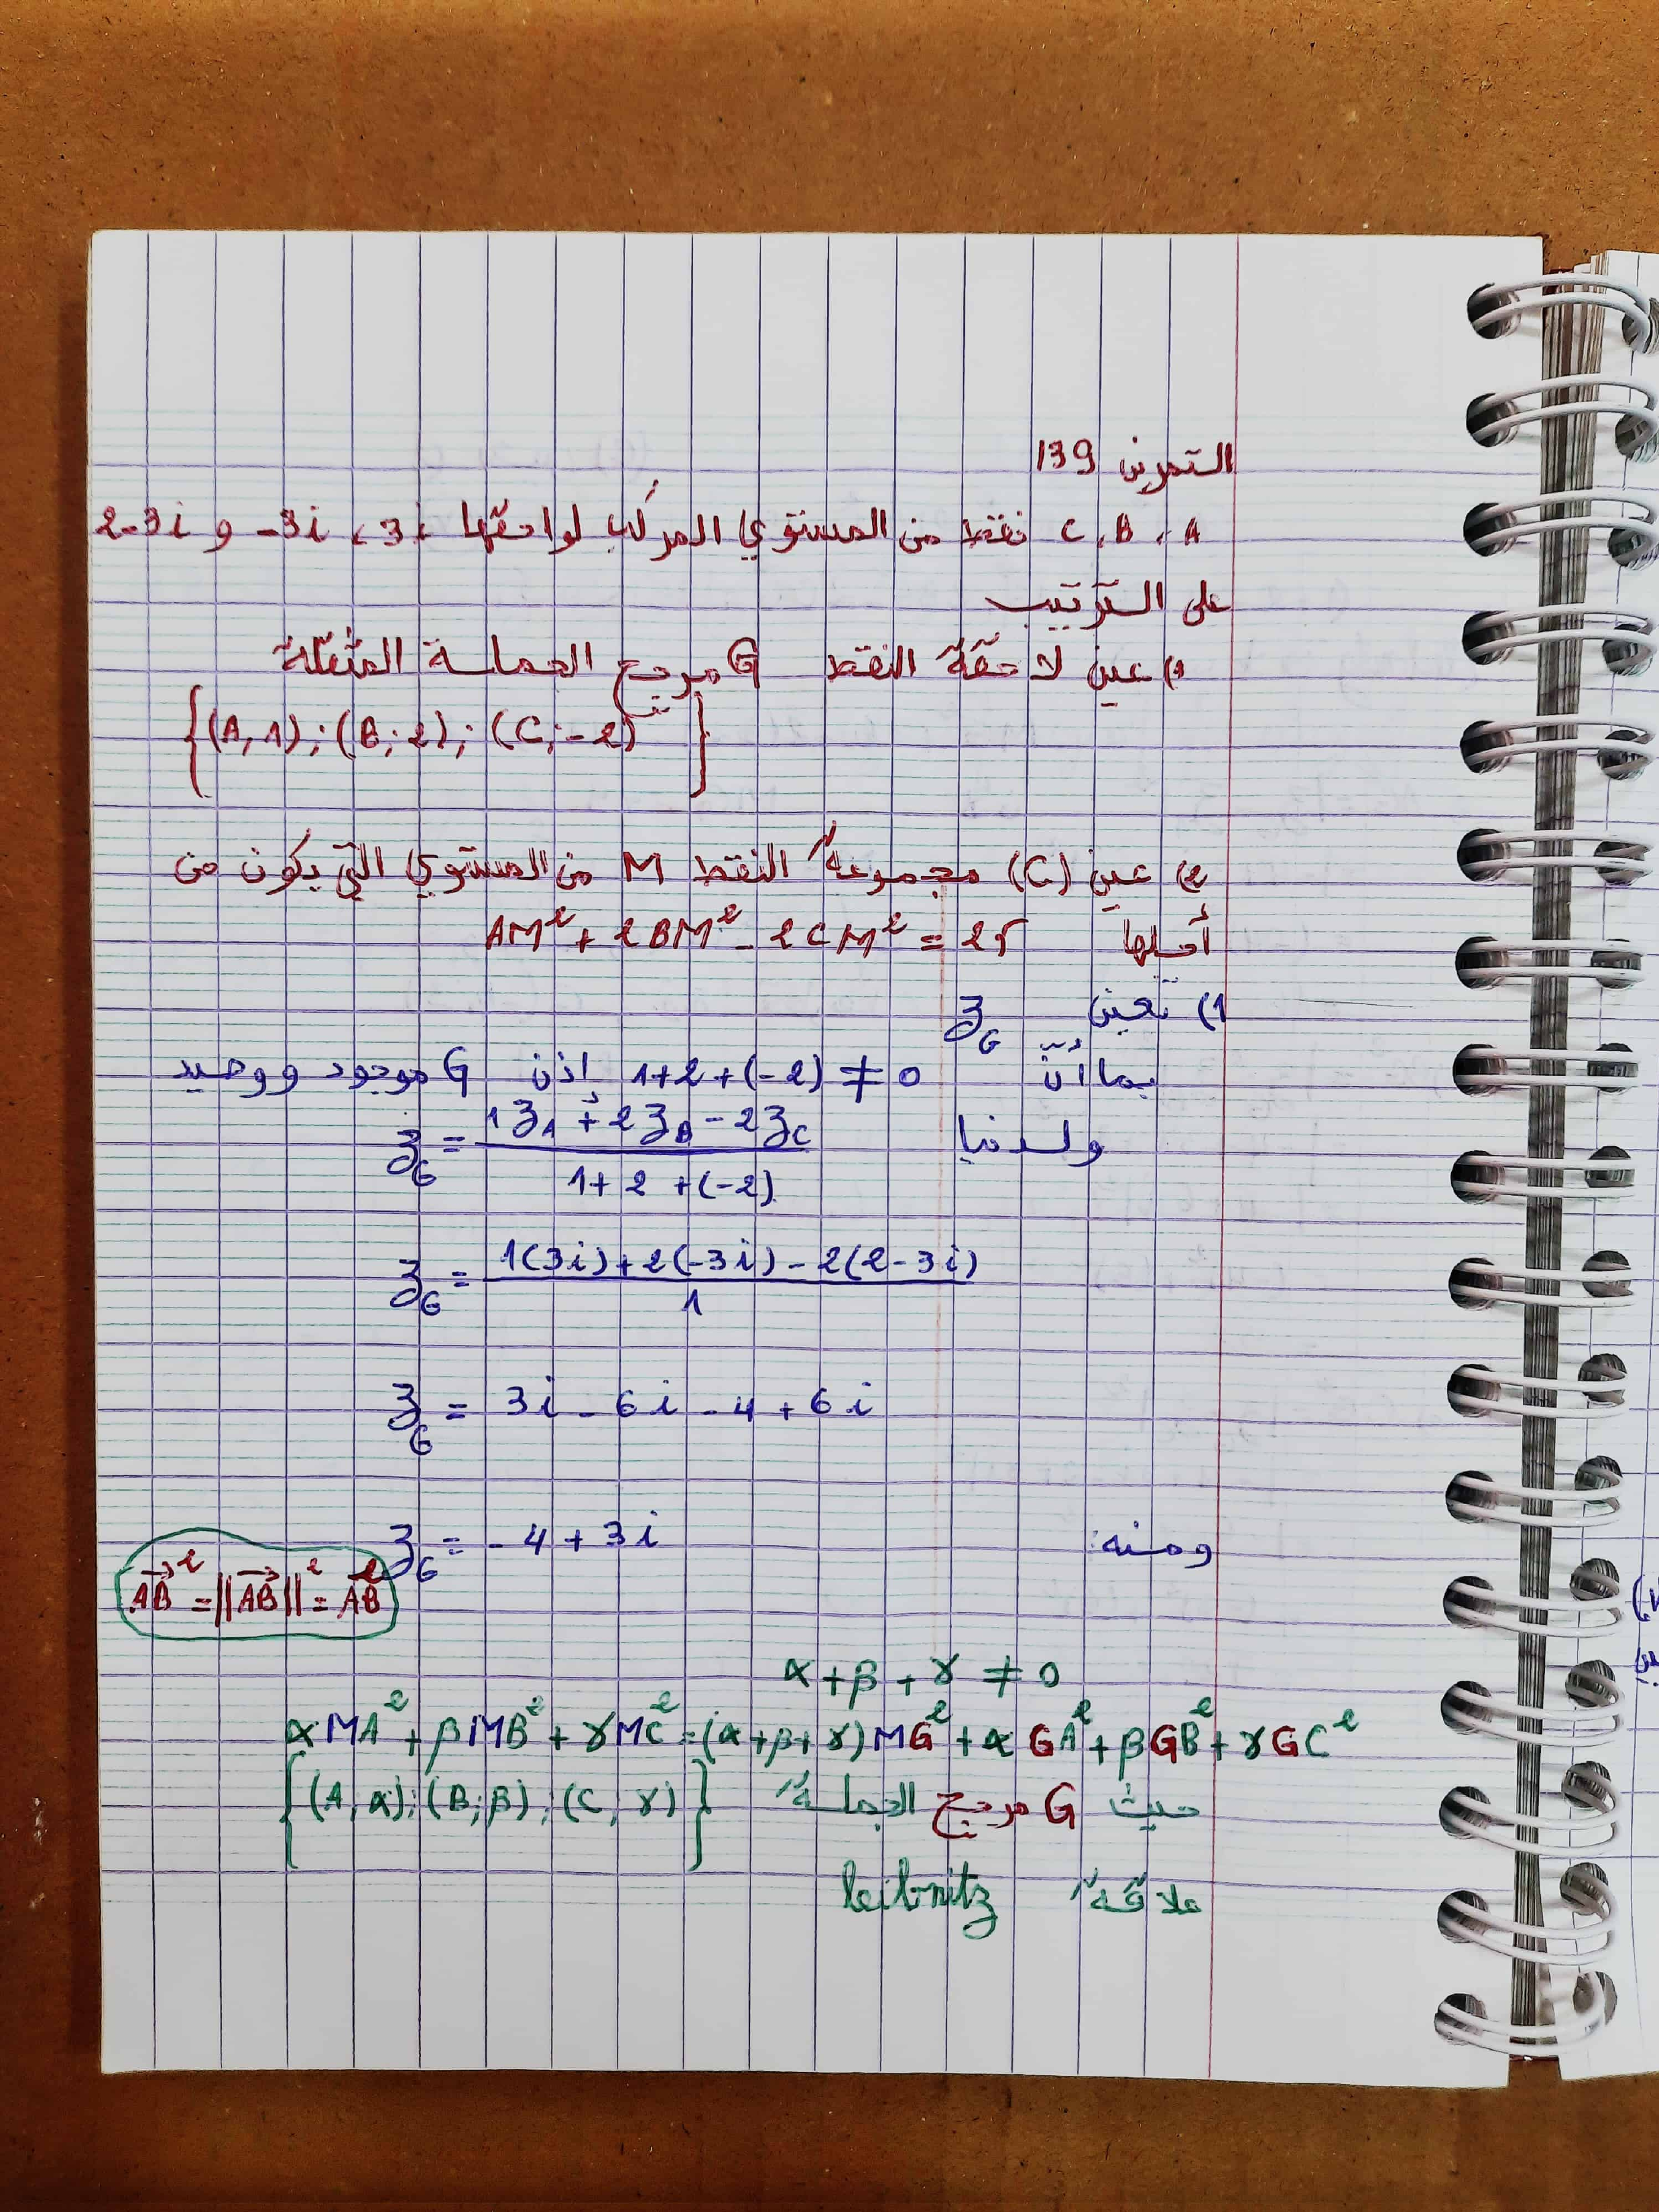 التمرين 139
A ، B ، C نقط من المستوي المركب لواحقها 3i ، -3i و 2-3i
على الترتيب
1) عين لاحقة النقط G مرجح الجملة المثقلة
{(A,1);(B;2);(C;-2)}
2) عين (C) مجموعة النقط M من المستوي التي يكون من
أجلها AM²+2BM²-2CM²=25
1) تعين z_G
بما أنّ 1+2+(-2)≠0 إذن G موجود ووحيد
ولدينا z_G = (1z_A+2z_B-2z_C)/(1+2+(-2))
z_G = (1(3i)+2(-3i)-2(2-3i))/1
z_G = 3i-6i-4+6i
ومنه: z_G = -4+3i
AB⃗² = ||AB⃗||² = AB²
α+β+γ≠0
αMA²+βMB²+γMC²=(α+β+γ)MG²+αGA²+βGB²+γGC²
حيث G مرجح الجملة {(A,α);(B;β);(C,γ)}
علاقة leibnitz